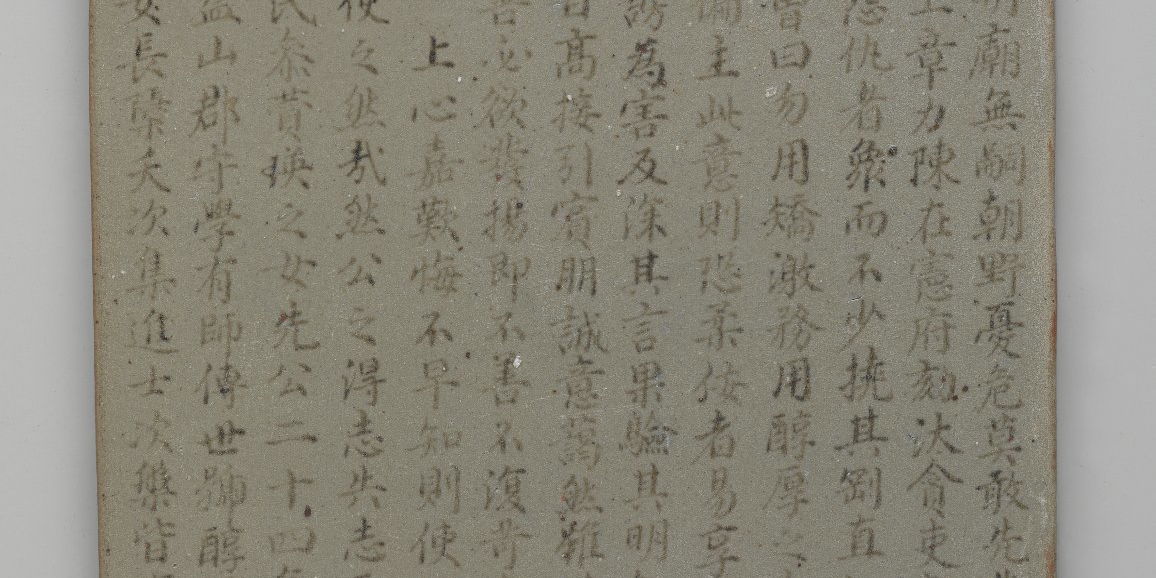 明廟無嗣朝野憂危莫敢先
上章力陳在憲府劾汰貪吏
怨仇者衆而不少撓其剛直
嘗曰勿用矯激務用醇厚之
偏主此意則恐柔佞者易享
謗為害及深其言果驗其明
日高接引賓朋誠意藹然雖
善必欲發揚即不善不復
上心嘉歎悔不早知則使
使之然㢤然公之得志失志
氏黄瑛之女先公二十四
益山郡守學有師傅世號醇
女長檠夭次集進士次樂皆